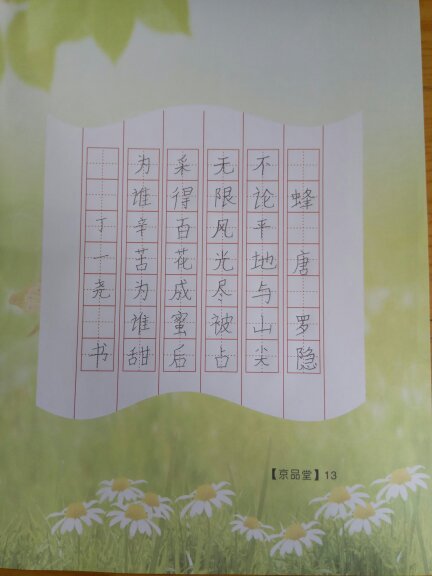 蜂 唐 罗隐
不论平地与山尖
无限风光尽被占
采得百花成蜜后
为谁辛苦为谁甜
丁一尧 书
【京品堂】13